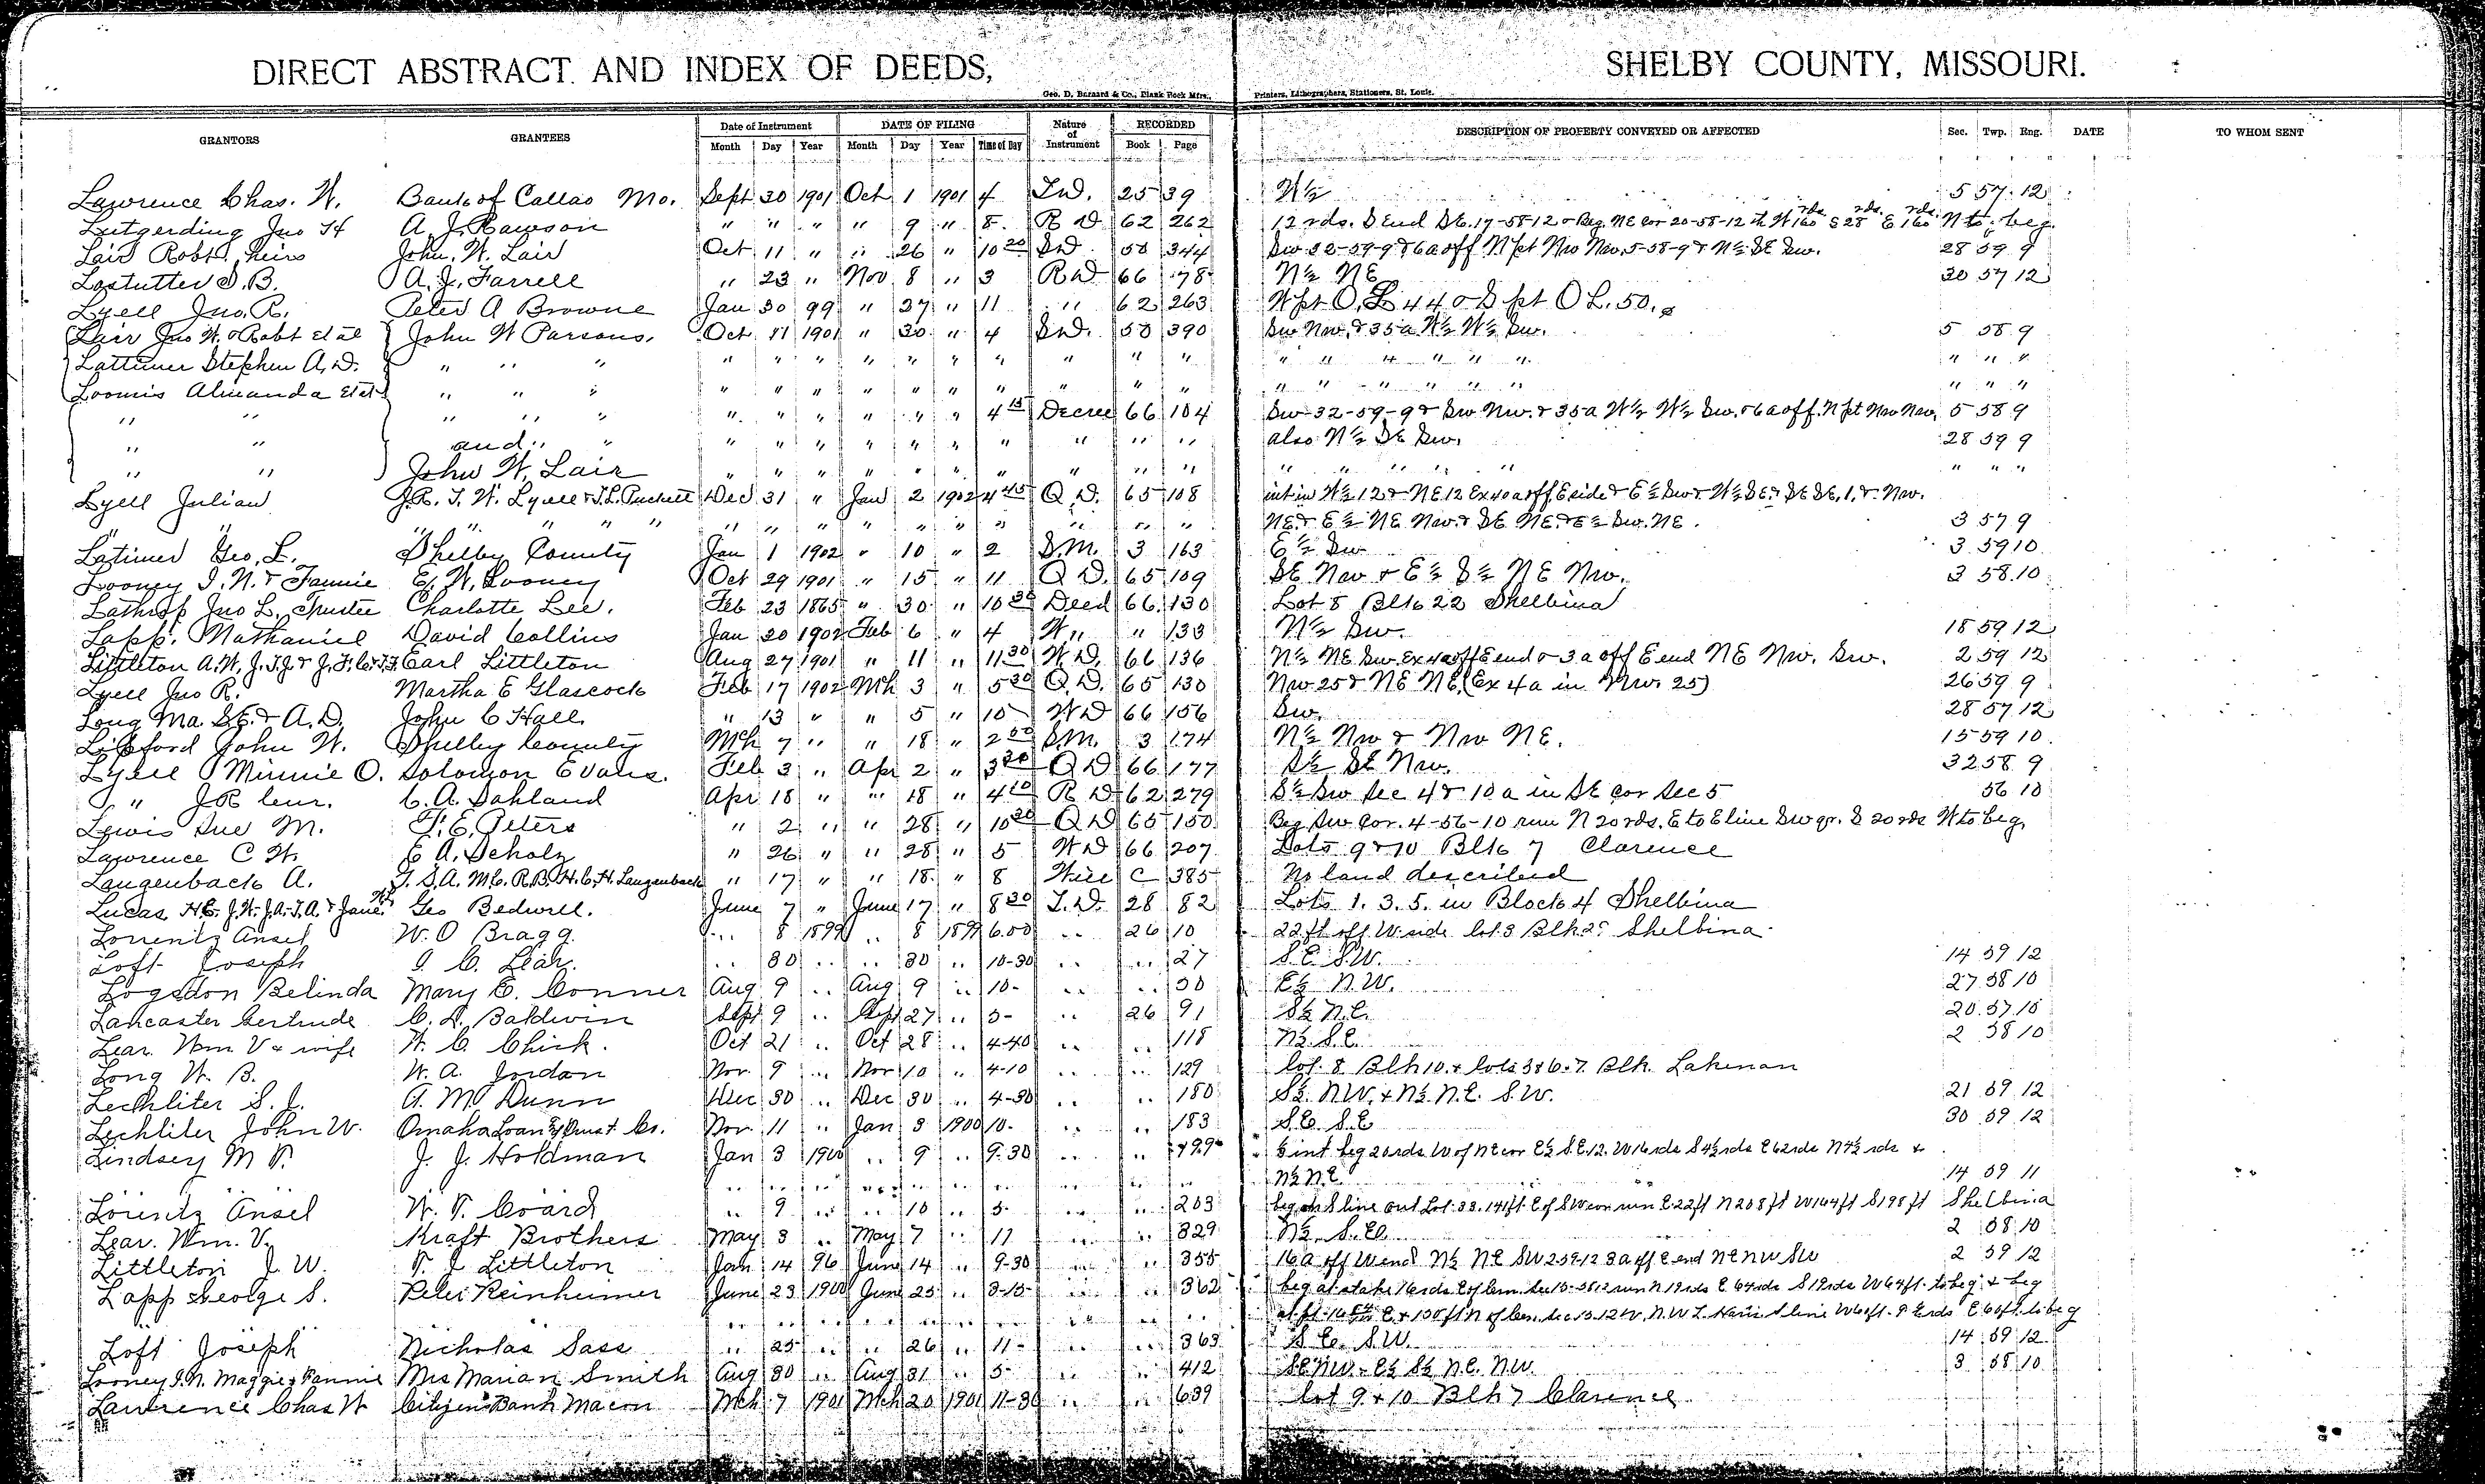 DIRECT ABSTRACT AND INDEX OF DEEDS, SHELBY COUNTY, MISSOURI.
Geo. D. Barnard & Co., Blank Book Mfrs., Printers, Lithographers, Stationers, St. Louis.
GRANTORS GRANTEES Date of Instrument DATE OF FILING Nature of Instrument RECORDED DESCRIPTION OF PROPERTY CONVEYED OR AFFECTED Sec. Twp. Rng. DATE TO WHOM SENT
Month Day Year Month Day Year Time of Day Book Page
Lawrence Chas. W. Bank of Callao Mo. Sept 30 1901 Oct 1 1901 4 25 39 5 57 12
Lutgerding Jno H A. J. Rawson " " " " 9 " 8 R D 62 262 12 rds. S End SE. 17-58-12 & Beg. NE Cor 20-58-12 th W 160 rds S 28 rds. E 160 rds. N to beg.
Lair Robt. heirs John. W. Lair Oct 11 " " 26 " 10 20 58 344 Sw 32-59-9 & 6a off N pt Nw Nw. 5-58-9 & N½ SE Sw. 28 59 9
Lostutter S. B. A. J. Farrell " 23 " Nov 8 " 3 R D 66 78 N½ NE 30 57 12
Lyell Jno. R. Peter A Browne Jan 30 99 " 27 " 11 " 62 263 W pt O. L 44 & S pt O L. 50.
Lair Jno W. & Robt et al John W Parsons. Oct 11 1901 " 30 " 4 58 390 Sw Nw. & 35a W½ W½ Sw. 5 58 9
Lattimer Stephen A. D. " " " " " " " " " " " " " " " " " " " " " "
Loomis Almanda et al " " " " " " " " " " " " " " " " " " " " " "
" " " " " " " " " " " 4 15 Decree 66 104 Sw 32-59-9 & Sw Nw. & 35a W½ W½ Sw. & 6a off N pt Nw Nw. 5 58 9
" " and " " " " " " " " " " " " also N½ SE Sw. 28 59 9
" " John W. Lair " " " " " " " " " " " " " " " " " "
Lyell Julian J.R. T. W. Lyell & J.L. Puckett Dec 31 " Jan 2 1902 4 45 Q D. 65 108 int in W½ 12 & NE 12 Ex 40a off E side & E½ Sw & W½ SE. & SE SE. 1. & Nw.
" " " " " " " " " " " " " " " " " NE & E½ NE Nw. & SE NE & E½ Sw. NE. 3 57 9
Latimer Geo. L. Shelby County Jan 1 1902 " 10 " 2 S.M. 3 163 E½ Sw 3 59 10
Looney I. N. & Fannie E. W. Looney Oct 29 1901 " 15 " 11 Q D. 65 109 SE Nw & E½ S½ NE Nw. 3 58 10
Lathrop Jno L. Trustee Charlotte Lee. Feb 23 1865 " 30 " 10 30 Deed 66 130 Lot 8 Blk 22 Shelbina
Lapp. Nathaniel David Collins Jan 20 1902 Feb 6 " 4 W " " 133 N½ Sw. 18 59 12
Littleton A.W. Earl Littleton Aug 27 1901 " 11 " 11 30 W D. 66 136 N½ NE Sw Ex 4a off E end & 3 a off E end NE Nw. Sw. 2 59 12
Lyell Jno R. Martha E Glascock Feb 17 1902 Mch 3 " 5 30 Q D. 65 130 Nw 25 & NE NE. (Ex 4a in Nw. 25) 26 59 9
Long Ma. S.E. & A.D. John C Hall. " 13 " " 5 " 10 W D 66 156 Sw. 28 57 12
Lipford John W. Shelby County Mch 7 " " 18 " 2 00 S.M. 3 174 N½ Nw & Nw NE. 15 59 10
Lyell Minnie O. Solomon Evans. Feb 3 " Apr 2 " 3 20 Q D 66 177 S½ SE Nw. 32 58 9
" J R cur. C. A. Dahland Apr 18 " " 18 " 4 10 R D 62 279 S½ Sw Sec 4 & 10 a in SE cor Sec 5 56 10
Lewis Sue M. T. E. Peters " 2 " " 28 " 10 30 Q D 65 150 Beg Sw Cor. 4-56-10 run N 20 rds. E to E line Sw qr. S 20 rds W to beg.
Lawrence C W. E A. Scholz " 26 " " 28 " 5 W D 66 207 Lots 9 & 10 Blk 7 Clarence
Langenback A. T. S.A. M.C. R.B. H.C. H. Langenback " 17 " " 18. " 8 Will C 385 No land described
Lucas H.C. J.W. J.A. T.A. & Jane Geo Bedwell. June 7 " June 17 " 8 30 T. D. 28 82 Lots 1. 3. 5. in Block 4 Shelbina
Lorentz Ansel W. O Bragg. " 8 1899 " 8 1899 6.00 " 26 10 22 ft off W side lot 3 Blk Shelbina
Loft Joseph I. C. Lear. " 30 " " 30 " 10-30 " " 27 S. E. S.W. 14 59 12
Logsdon Belinda Mary E. Conner Aug 9 " Aug 9 " 10- " " 30 E½ N.W. 27 58 10
Lancaster Gertrude C. D. Baldwin Sept 9 " Sept 27 " 5- " 26 91 S½ N.E. 20 57 10
Lear. Wm. V & wife W. C. Chick. Oct 21 " Oct 28 " 4-40 " " 118 N½ S.E. 2 58 10
Long W. B. W. A. Jordan Nov. 9 " Nov 10 " 4-10 " " 129 lot. 8 Blk 10. & lots 3 & 6-7. Blk. Lakenan
Lechliter S. J. A. M. Dunn Dec 30 " Dec 30 " 4-30 " " 180 S½ NW. & N½ N.E. S.W. 21 59 12
Lechliter John W. Omaha Loan & Trust Co. Nov. 11 " Jan 3 1900 10- " " 183 S.E. S.E 30 59 12
Lindsey M. V. J. J. Holdman Jan 3 1900 " 9 " 9-30 " " 499 int beg 20 rds W of NE cor E½ S.E. 12. W 16 rds S 4½ rds E 62 rds N 4½ rds &
" " " " " " " " " " N½ N.E. 14 59 11
Lorentz Ansel W. T. Coard " 9 " " 10 " 5- " " 203 beg on S line out Lot 33. 141 ft. E of SW cor run E 22 ft N 208 ft W 164 ft S 198 ft Shelbina
Lear. Wm. V. Kraft Brothers May 3 " May 7 " 11 " " 329 N½. S.E. 2 58 10
Littleton J. W. T. J Littleton Jan 14 96 June 14 " 9-30 " " 355 16 a off W end N½ NE SW 2-59-12 3 a off E end NE NW SW 2 59 12
Lapp George S. Peter Reinheimer June 23 1900 June 25 " 3-15- " " 362 beg at stake 16 rds E of Cen. run N 19 rds E 64 rds S 19 rds W 64 ft. to beg & beg
Loft Joseph Nicholas Sass " 25 " " 26 " 11- " " 363 S. E. S.W. 14 59 12
Looney I. N. Maggie & Fannie Mrs Marian Smith Aug 30 " Aug 31 " 5- " " 412 SE NW. E½ S½ N.E. N.W. 3 58 10
Lawrence Chas W Citizens Bank Macon Mch 7 1901 Mch 20 1901 11-30 " " 639 lot 9 & 10 Blk 7 Clarence